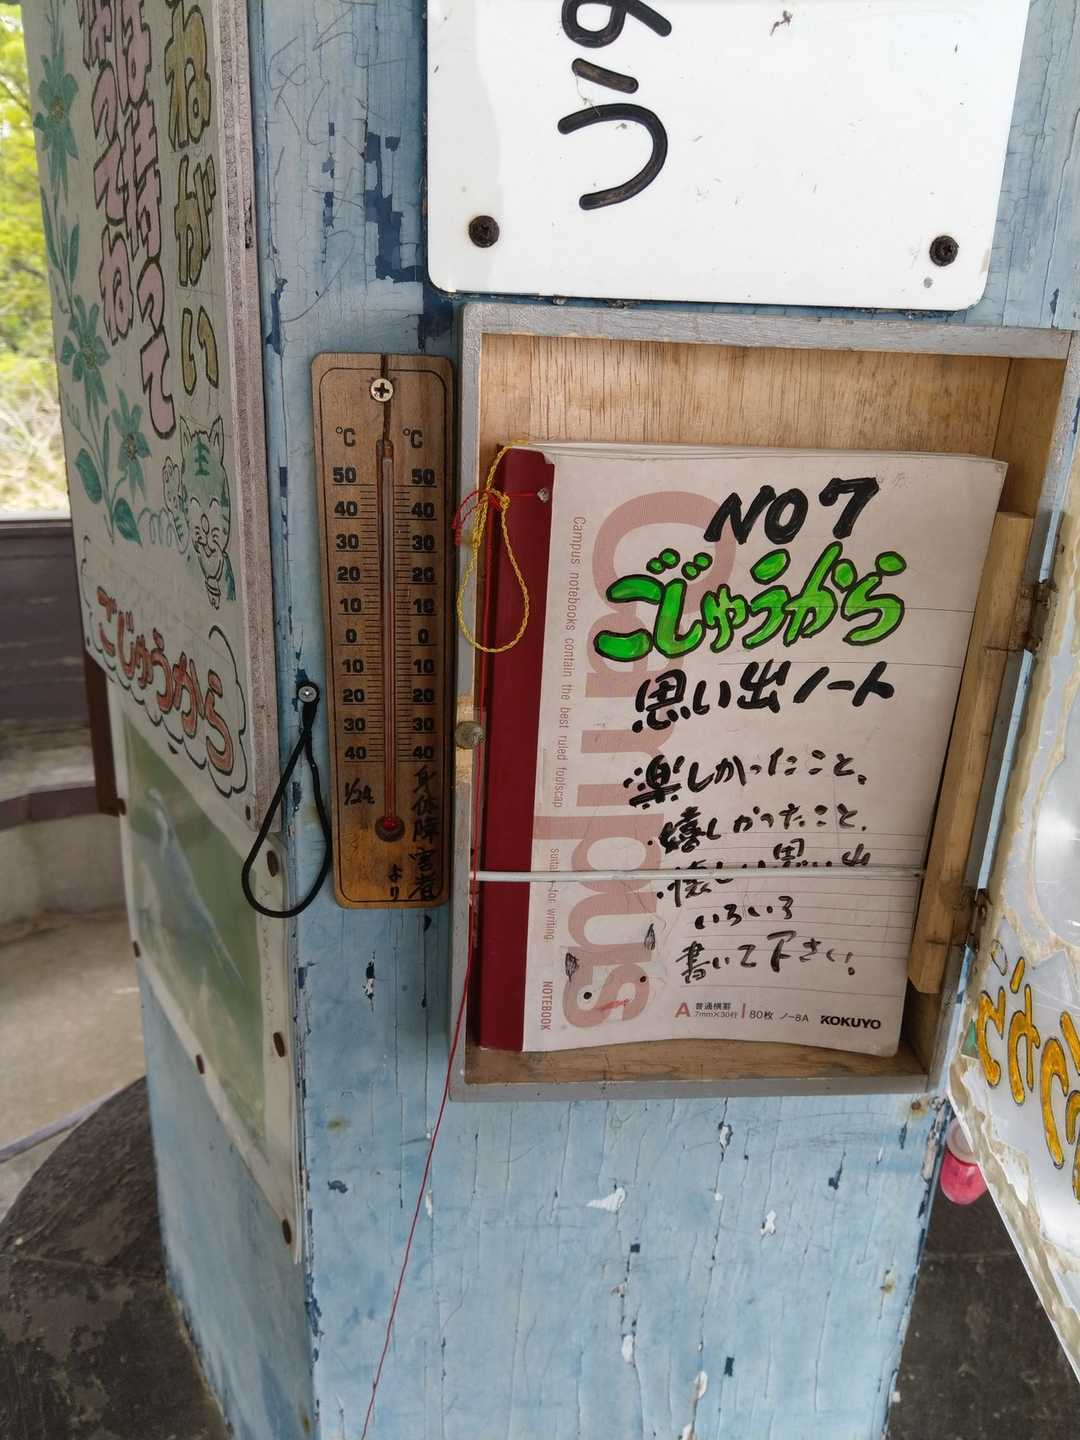 ねがい
は持って
ってね
ごじゅうから
°C °C
50 50
40 40
30 30
20 20
10 10
0 0
10 10
20 20
30 30
40 40
身体障害者
より
NO7
ごじゅうから
思い出ノート
楽しかったこと、
嬉しかったこと、
懐しい思い出
いろいろ
書いて下さい。
Campus
Campus notebooks contain the best ruled foolscap suitable for writing
NOTEBOOK
A 普通横罫
7mm×30行 80枚 ノ-8A KOKUYO